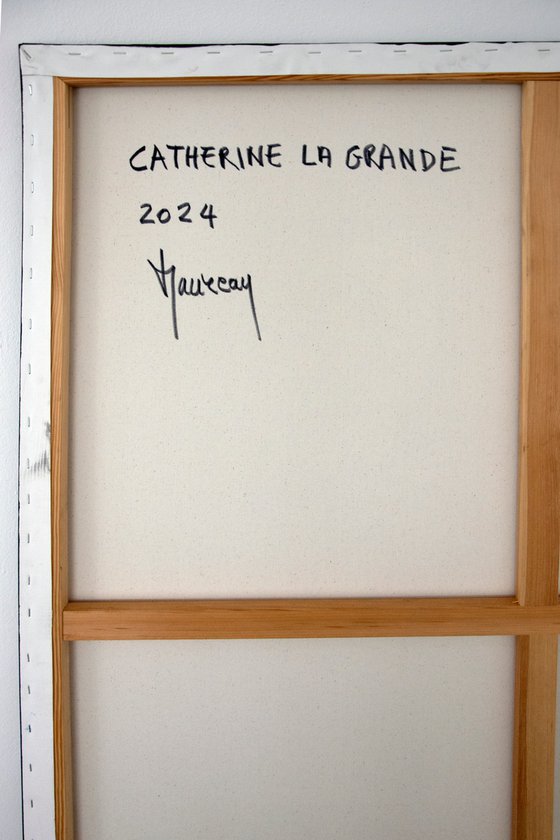 CATHERINE LA GRANDE
2024